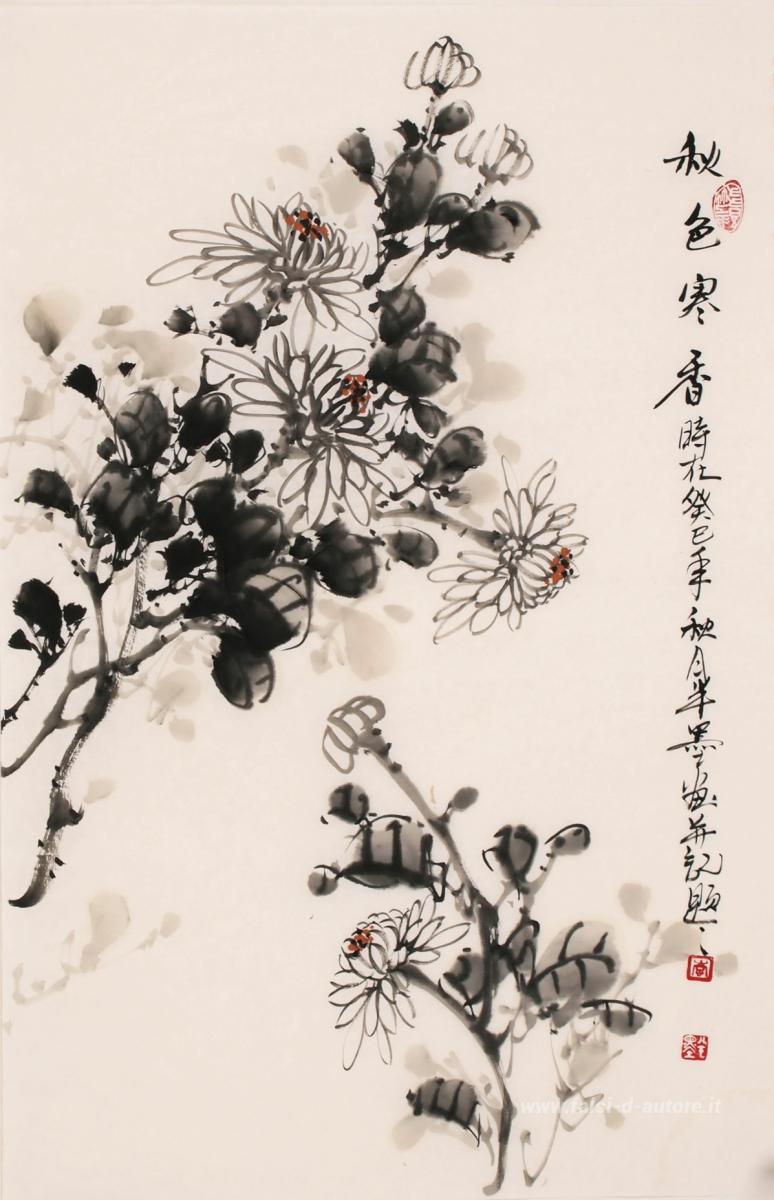 秋色寒香
時在癸巳年秋月半墨畫并記題
www.falsi-d-autore.it